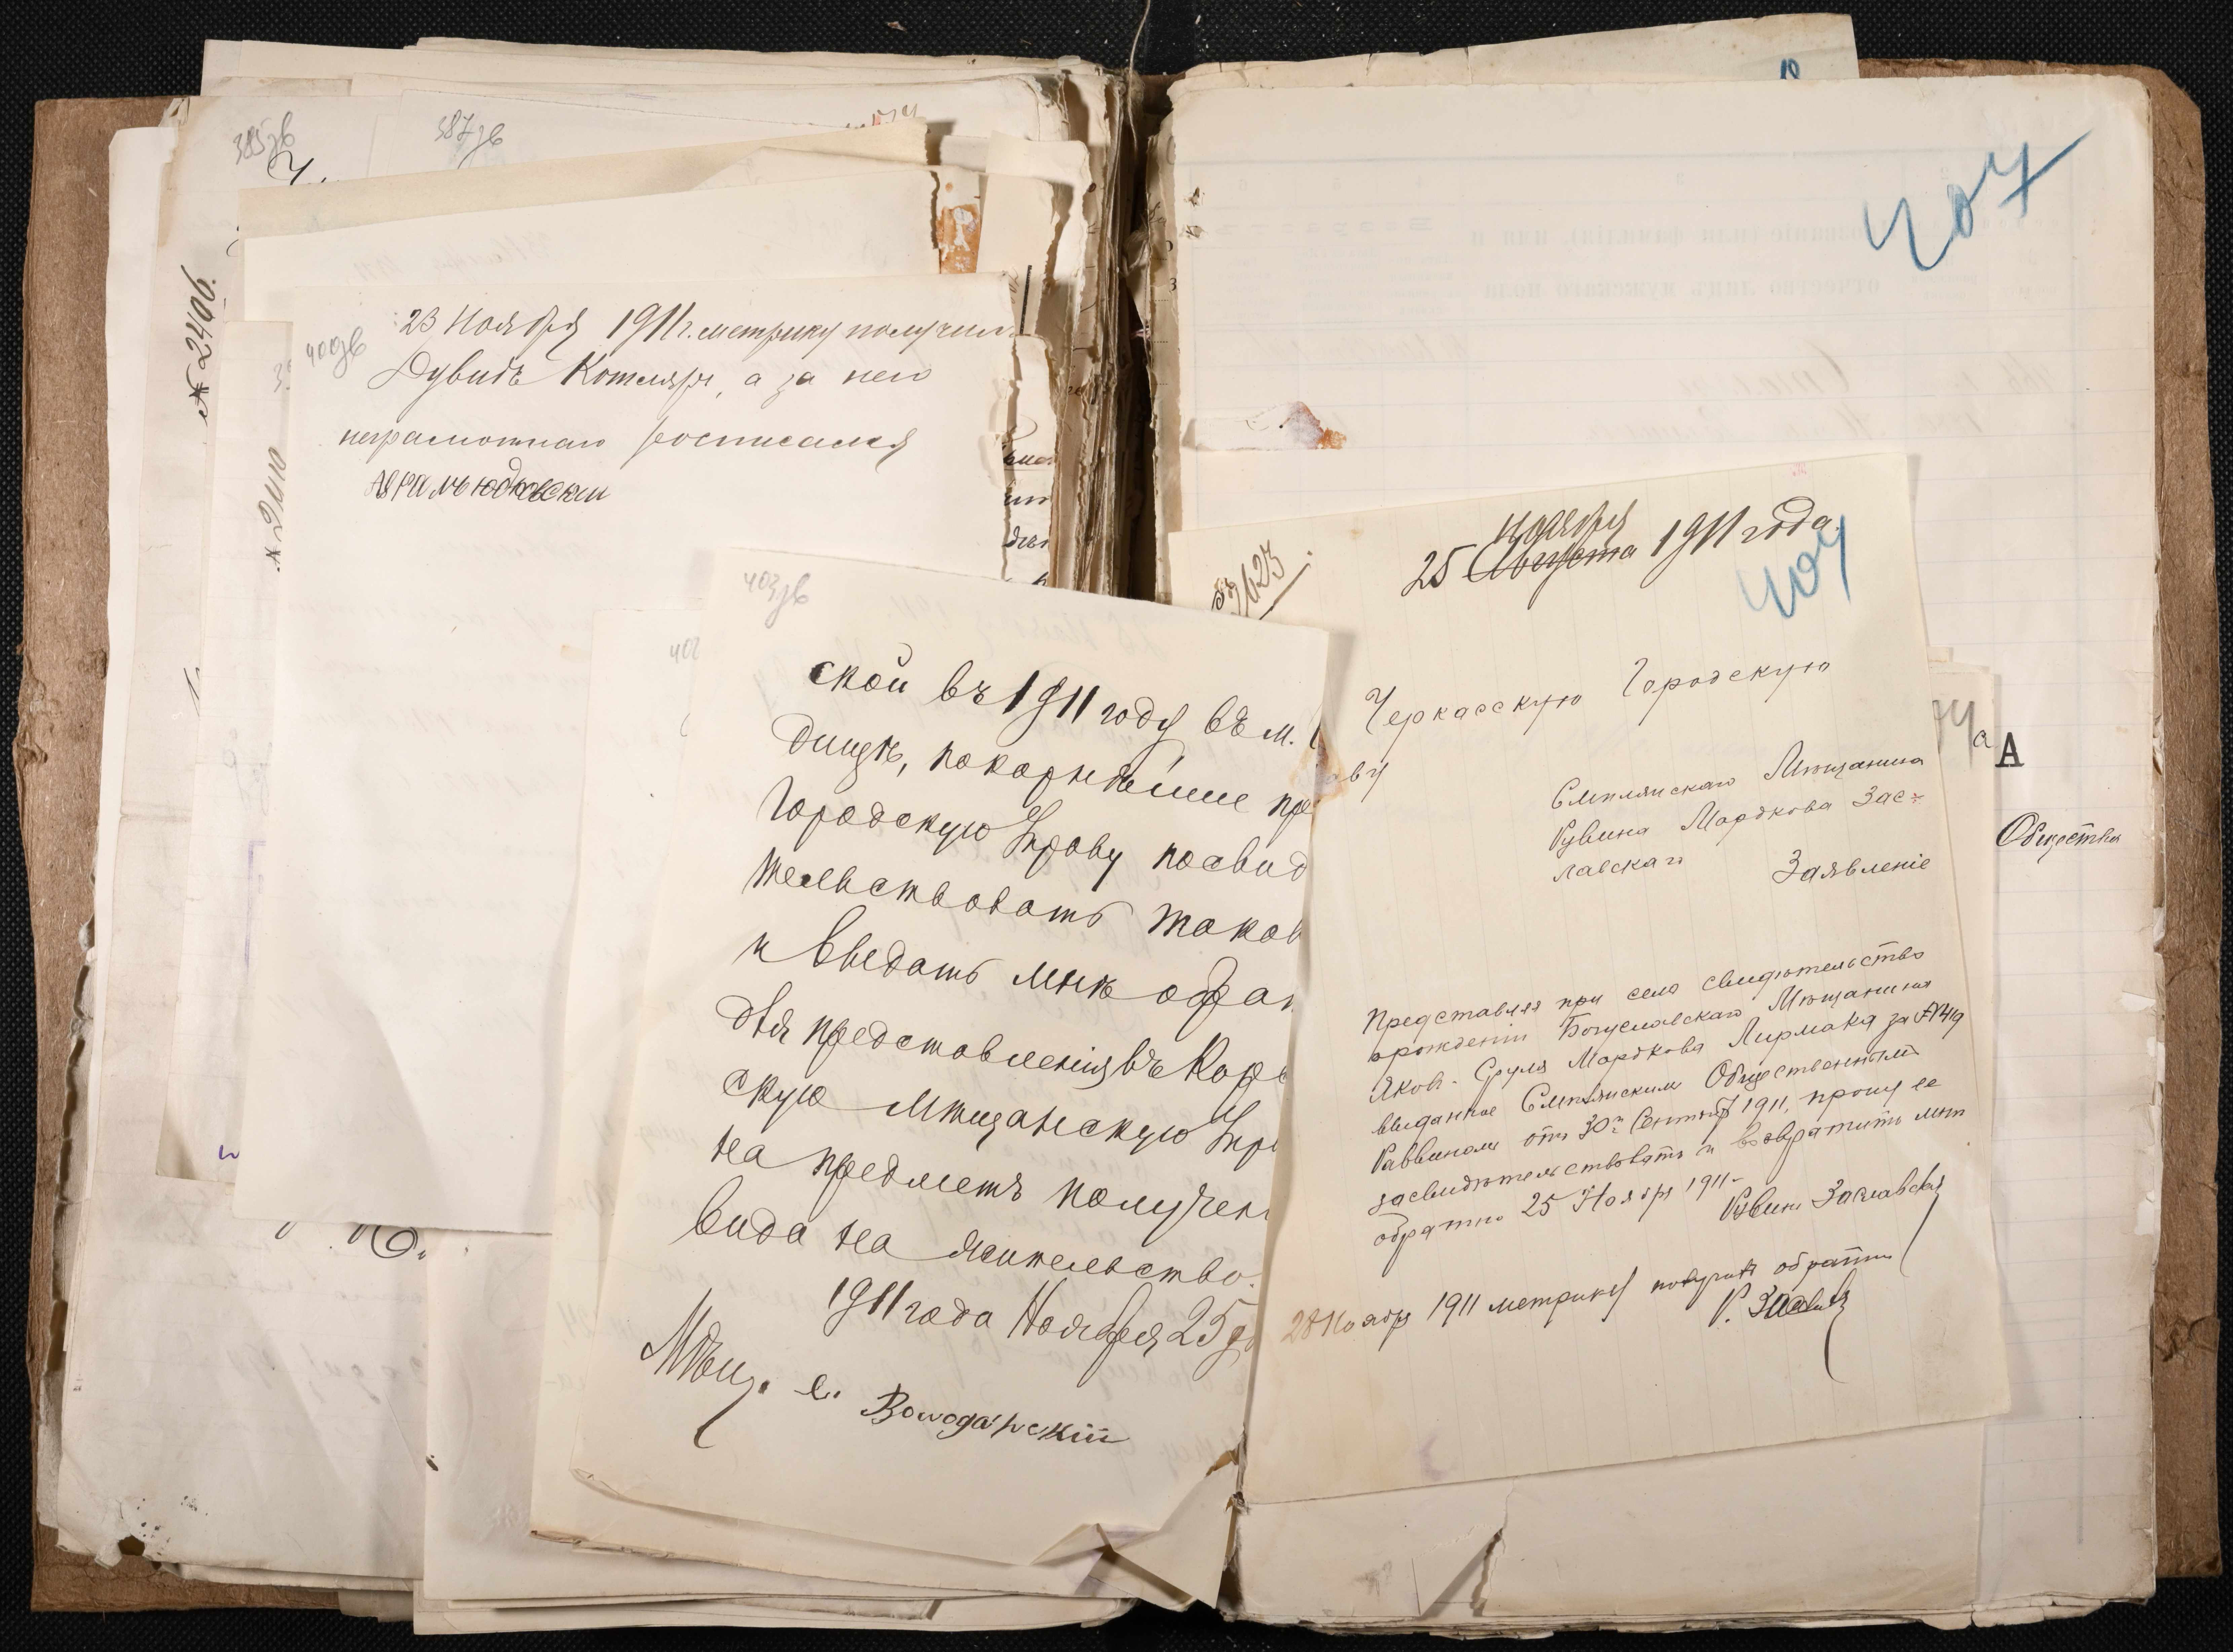 385зв
387зв
№ 2406.
400зв
23 Ноября 1911 г. метрику получил
Дувидъ Котляръ, а за него
неграмотнаго росписался
Аврамъ Юдковскій
403зв
ской въ 1911 году въ м.
дищѣ, покорнѣйше про
Городскую Управу посвид
тельствовать таков
и выдать мнѣ обрат
для представленія въ Корс
скую Мѣщанскую Упр
на предметъ получен
вида на жительство.
1911 года Ноября 25 дн
Мѣщ. е. Володарскій
407
№ 2623
Ноября
25 Августа 1911 года.
404
Черкасскую Городскую
аву
Смѣлянскаго Мѣщанина
Рувина Мордкова Зас-
лавскаго
Заявленіе
Представляя при семъ свидѣтельство
орожденіи Богуславскаго Мѣщанина
Яковъ-Сруля Мордкова Лирмака за №419
выданное Смѣлянскимъ Общественнымъ
Раввиномъ отъ 30го Сентяб 1911, прошу ее
засвидѣтельствовать и возвратить мнѣ
обратно 25 Ноября 1911-
Рувинъ Заславскій
28 Ноябр 1911 метрику получилъ обратно
Р. Заславск
А
Общества